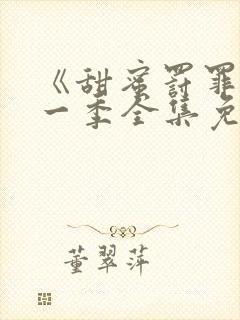 《甜蜜罚罪
一季全集免
董翠萍